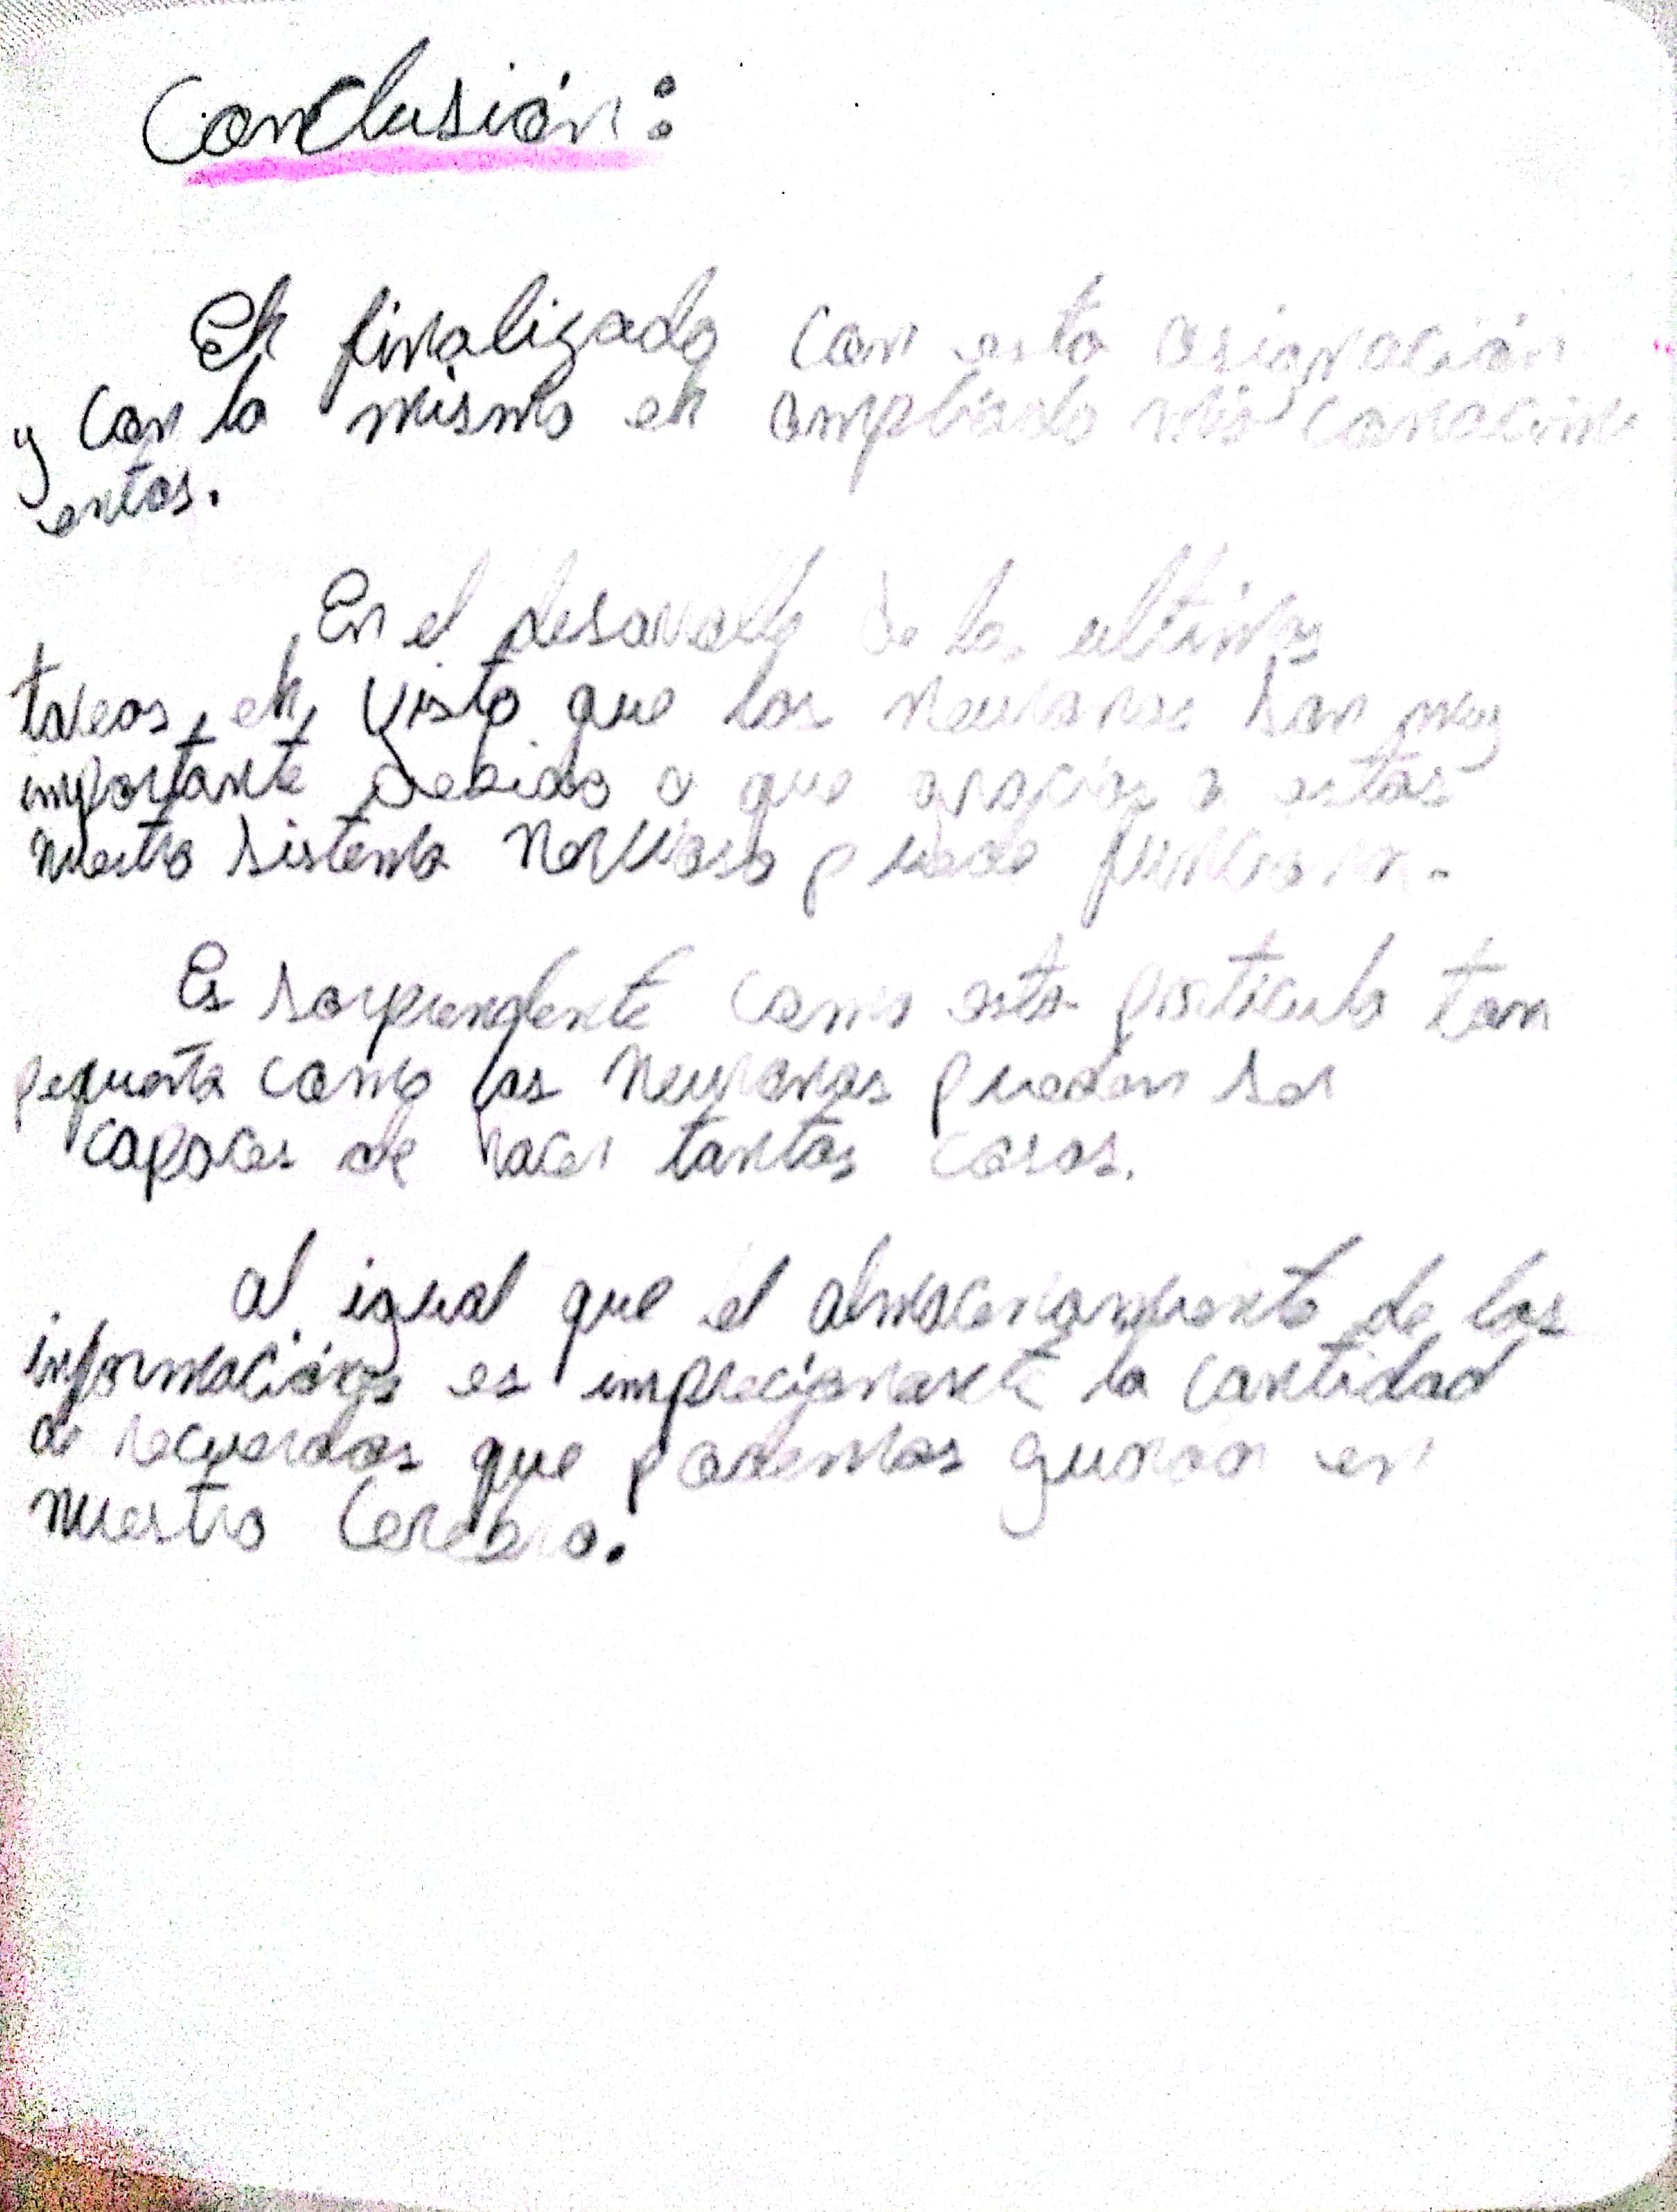 Conclusión:
Eh finalizado con esta asignación
y con la misma eh ampliado mis conocimi
entos.
En el desarrollo de las ultimas
tareas, eh, visto que las neuronas son muy
importante debido a que gracias a estas
nuestro sistema nervioso puede funcionar.
Es sorprendente como esta particula tan
pequeña como las neuronas pueden ser
capaces de hacer tantas cosas.
Al igual que el almacenamiento de las
informaciónes es imprecionante la cantidad
de recuerdos que podemos guardar en
nuestro Cerebro.